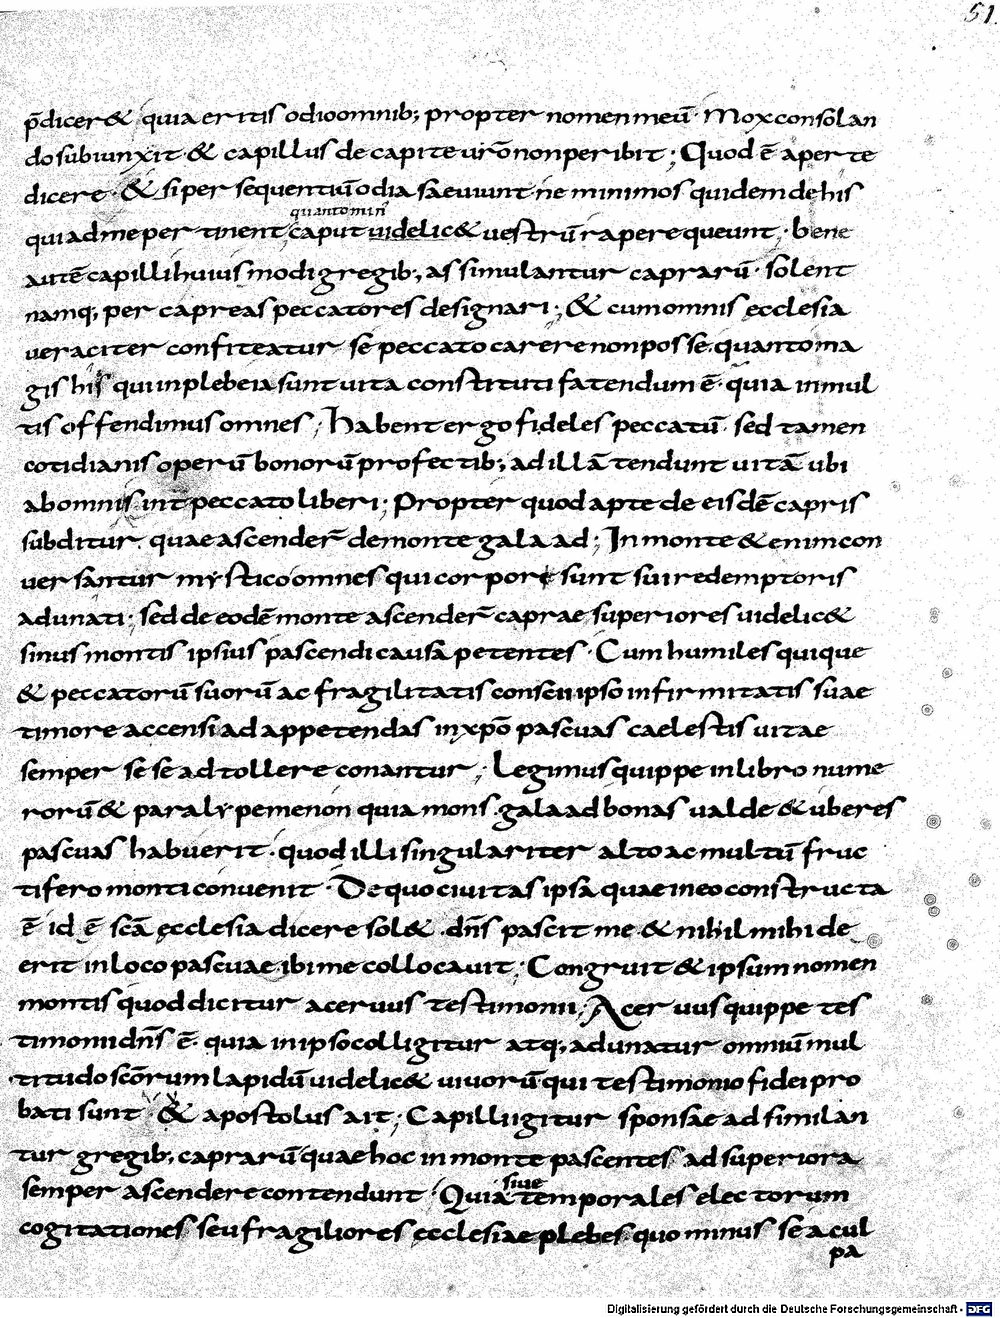 51.
p̄dicer& quia eritis odio omnib; propter nomen meū · Mox consolan
do subiunxit & capillus de capite ur̄o non peribit ; Quod ē aperte
dicere · & si persequentiū odia saeuiunt ne minimos quidem de his
quantomin̄
qui ad me pertinent, caput uidelic& uestrū rapere queunt ; bene
autē capilli huiusmodi gregib; assimulantur caprarū · solent
namq; per capreas peccatores designari ; & cum omnis ęcclesia
ueraciter confiteatur se peccato carere non posse. quanto ma
gis his qui in plebeia sunt uita constituti fatendum ē · quia in mul
tis offendimus omnes ; Habent ergo fideles peccatū · sed tamen
cotidianis operū bonorū profectib; ad illā tendunt uitā ubi
ab omni sint peccato liberi ; Propter quod apte de eisdē capris
subditur. quae ascender̄ de monte galaad ; In monte &enim con
uersantur mystico omnes qui corpore sunt sui redemptoris
adunati ; sed de eodē monte ascender̄ caprae superiores uidelic&
sinus montis ipsius pascendi causa petentes · Cum humiles quique
& peccatorū suorū ac fragilitatis conscii ipso infirmitatis suae
timore accensi ad appetendas in xp̄o pascuas caelestis uitae
semper sese adtollere conantur ; Legimus quippe in libro nume
rorū & paralypemenon quia mons galaad bonas ualde & uberes
pascuas habuerit · quod illi singulariter alto ac multū fruc
tifero monti conuenit · De quo ciuitas ipsa quae in eo constructa
ē id ē sc̄a ęcclesia dicere sol& · dn̄s pascit me & nihil mihi de
erit in loco pascuae ibi me collocauit ; Congruit & ipsum nomen
montis quod dicitur aceruus testimonii ; Aceruus quippe tes
timonii dn̄s ē · quia in ipso colligitur atq; adunatur omniū mul
titudo sc̄orum lapidū uidelic& uiuorū qui testimonio fidei pro
bati sunt · & apostolus ait ; Capilli igitur sponsae ad similan
tur gregib; caprarū quae hoc in monte pascentes ad superiora
semper ascendere contendunt · Quia temporales electorum
siue
cogitationes seu fragiliores ęcclesiae plebes quominus se a cul
pa
Digitalisierung gefördert durch die Deutsche Forschungsgemeinschaft - DFG